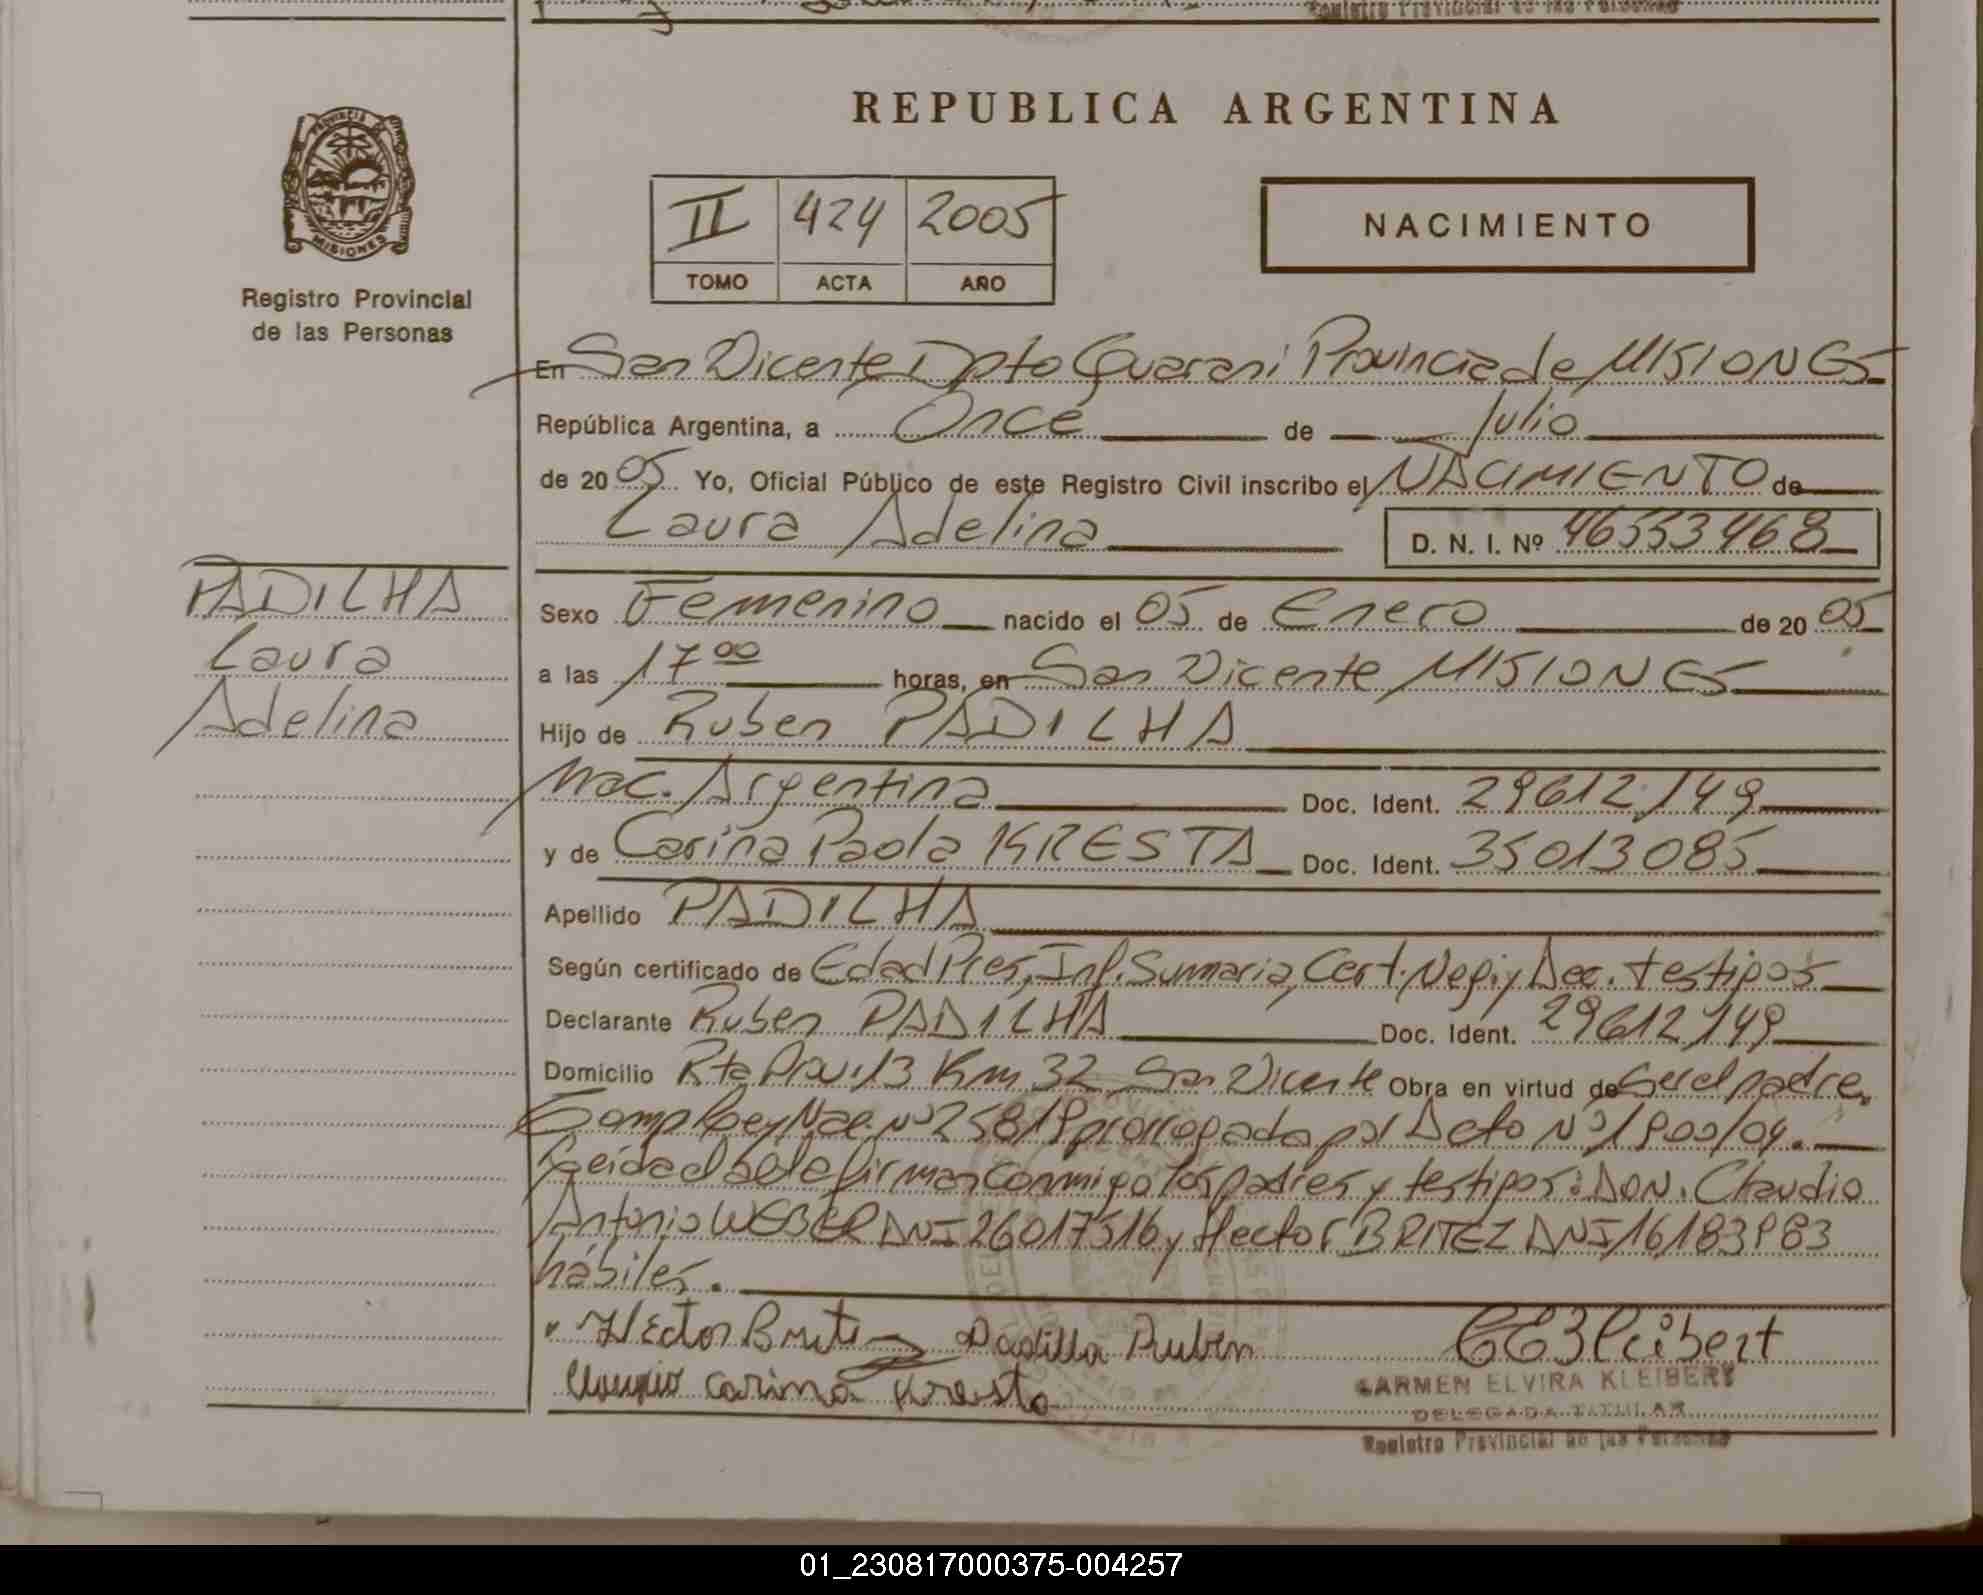 REPUBLICA ARGENTINA
PROVINCIA DE MISIONES
Registro Provincial
de las Personas
II 424 2005
TOMO ACTA AÑO
NACIMIENTO
En San Vicente Dpto Guarani Provincia de MISIONES
República Argentina, a Once de Julio
de 2005 Yo, Oficial Público de este Registro Civil inscribo el NACIMIENTO de
Laura Adelina D. N. I. Nº 46553468
PADILHA
Laura
Adelina
Sexo Femenino nacido el 05 de Enero de 2005
a las 17 00 horas, en San Vicente MISIONES
Hijo de Ruben PADILHA
Nac. Argentina Doc. Ident. 29612149
y de Carina Paola KRESTA Doc. Ident. 35013085
Apellido PADILHA
Según certificado de Edad Pres, Inf. Sumaria, Cert. Neg. y Dec. testigos
Declarante Ruben PADILHA Doc. Ident. 29612149
Domicilio Rta Prov. 13 Km 32 San Vicente Obra en virtud de Ser el padre.
Ley Nac. Nº 25819 prorrogada por Dcto Nº 1900/04.
Leida el acta firman conmigo los padres y testigos: DON. Claudio
Antonio WEBER DNI 26017516 y Hector BRITEZ DNI 16183983
hábiles.
Hector Britez Padilla Ruben
Carina Kresta
CARMEN ELVIRA KLEIBERT
DELEGADA TITULAR
Registro Provincial de las Personas
01_230817000375-004257